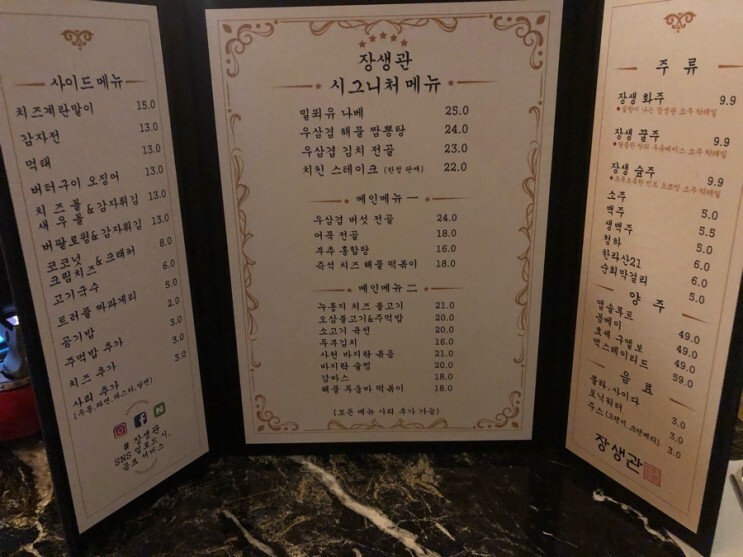 사이드 메뉴
치즈계란말이 15.0
감자전 13.0
먹태 13.0
버터구이 오징어 13.0
치즈볼&감자튀김 13.0
새우볼&감자튀김 13.0
버팔로윙&감자튀김 13.0
코코넛
크림치즈&크래커 8.0
고기국수 6.0
트러플 짜파게티 5.0
공기밥 2.0
주먹밥 추가 3.0
치즈 추가 3.0
사리 추가 3.0
(우동,라면,파스타,당면)
# 장생관
SNS 업로드 시
음료 서비스
장생관
시그니처 메뉴
밀푀유 나베 25.0
우삼겹 해물 짬뽕탕 24.0
우삼겹 김치 전골 23.0
치킨 스테이크 (한정 판매) 22.0
메인메뉴 一
우삼겹 버섯 전골 24.0
어묵 전골 18.0
부추 홍합탕 16.0
즉석 치즈 해물 떡볶이 18.0
메인메뉴 二
누룽지 치즈 불고기 21.0
오삼불고기&주먹밥 20.0
소고기 육전 20.0
두부김치 16.0
사천 바지락 볶음 21.0
바지락 술찜 20.0
감바스 18.0
해물 투움바 떡볶이 18.0
(모든 메뉴 사리 추가 가능)
주 류
장생 화주 9.9
장생 꿀주 9.9
장생 숲주 9.9
소주 5.0
맥주 5.5
생맥주 5.0
청하 6.0
한라산21 6.0
순희막걸리 5.0
양 주
앱솔루트 49.0
봄베이 49.0
호세 쿠엘보 49.0
잭스테이리드 59.0
음 료
콜라,사이다 3.0
토닉워터 3.0
쥬스 3.0
장생관